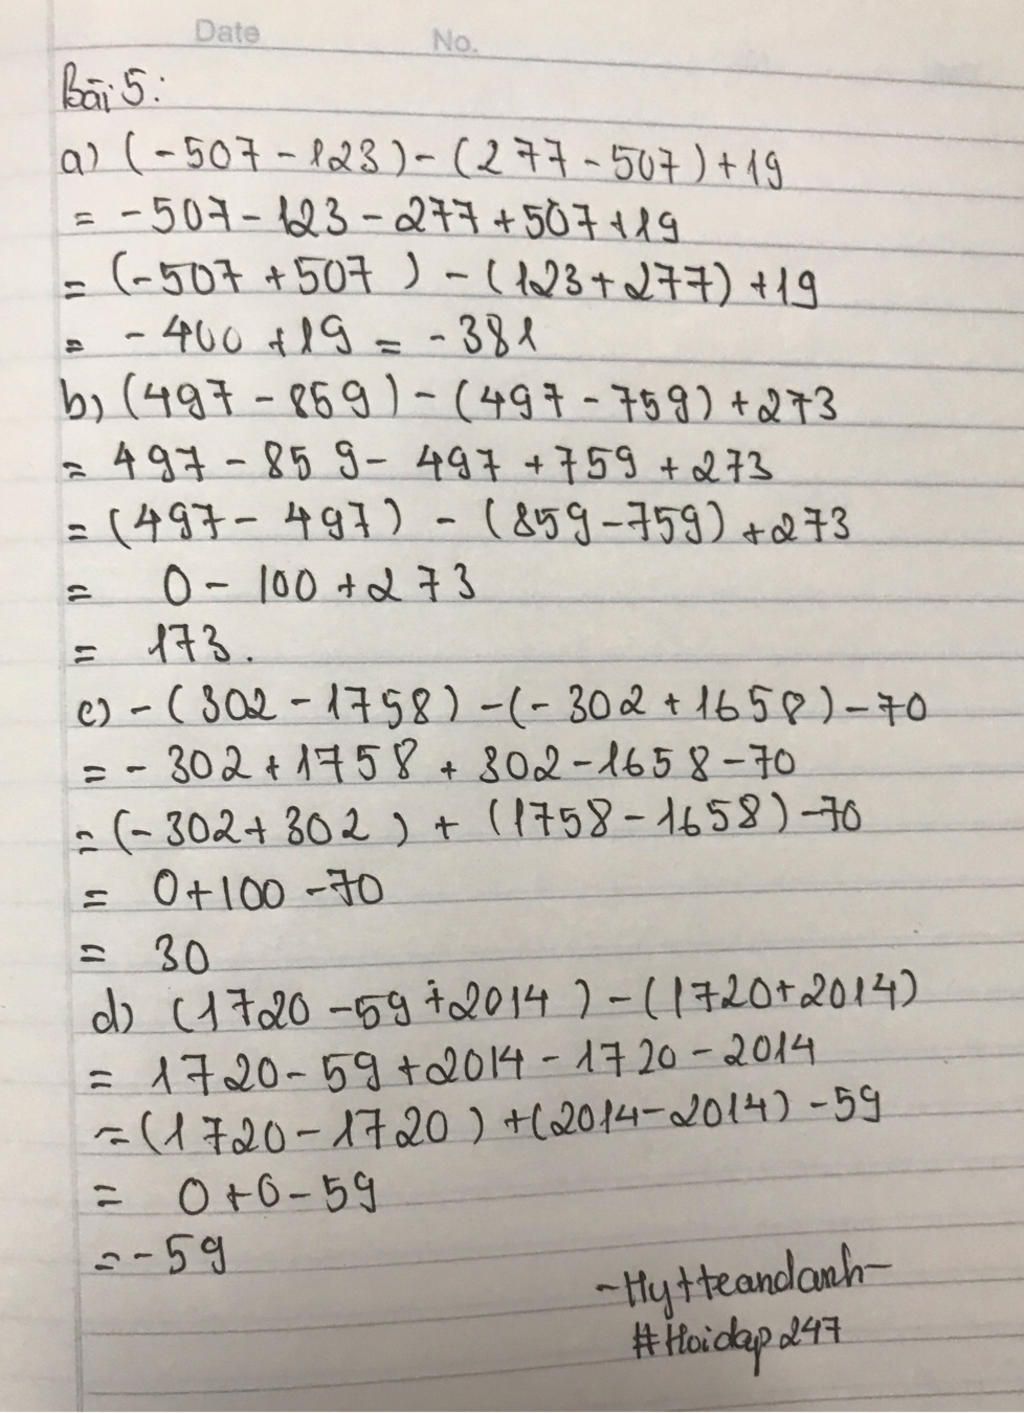 Date No.
Bài 5:
a) (-507-123)-(277-507)+19
= -507-123-277+507+19
= (-507+507) - (123+277) +19
= -400 +19 = -381
b) (497-859)-(497-759)+273
= 497-859-497+759+273
= (497-497) - (859-759) +273
= 0-100+273
= 173.
c) -(302-1758)-(-302+1658)-70
= -302+1758+302-1658-70
= (-302+302) + (1758-1658)-70
= 0+100-70
= 30
d) (1720-59+2014)-(1720+2014)
= 1720-59+2014-1720-2014
= (1720-1720)+(2014-2014)-59
= 0+0-59
= -59
-Hytteandanh-
#Hoidap247